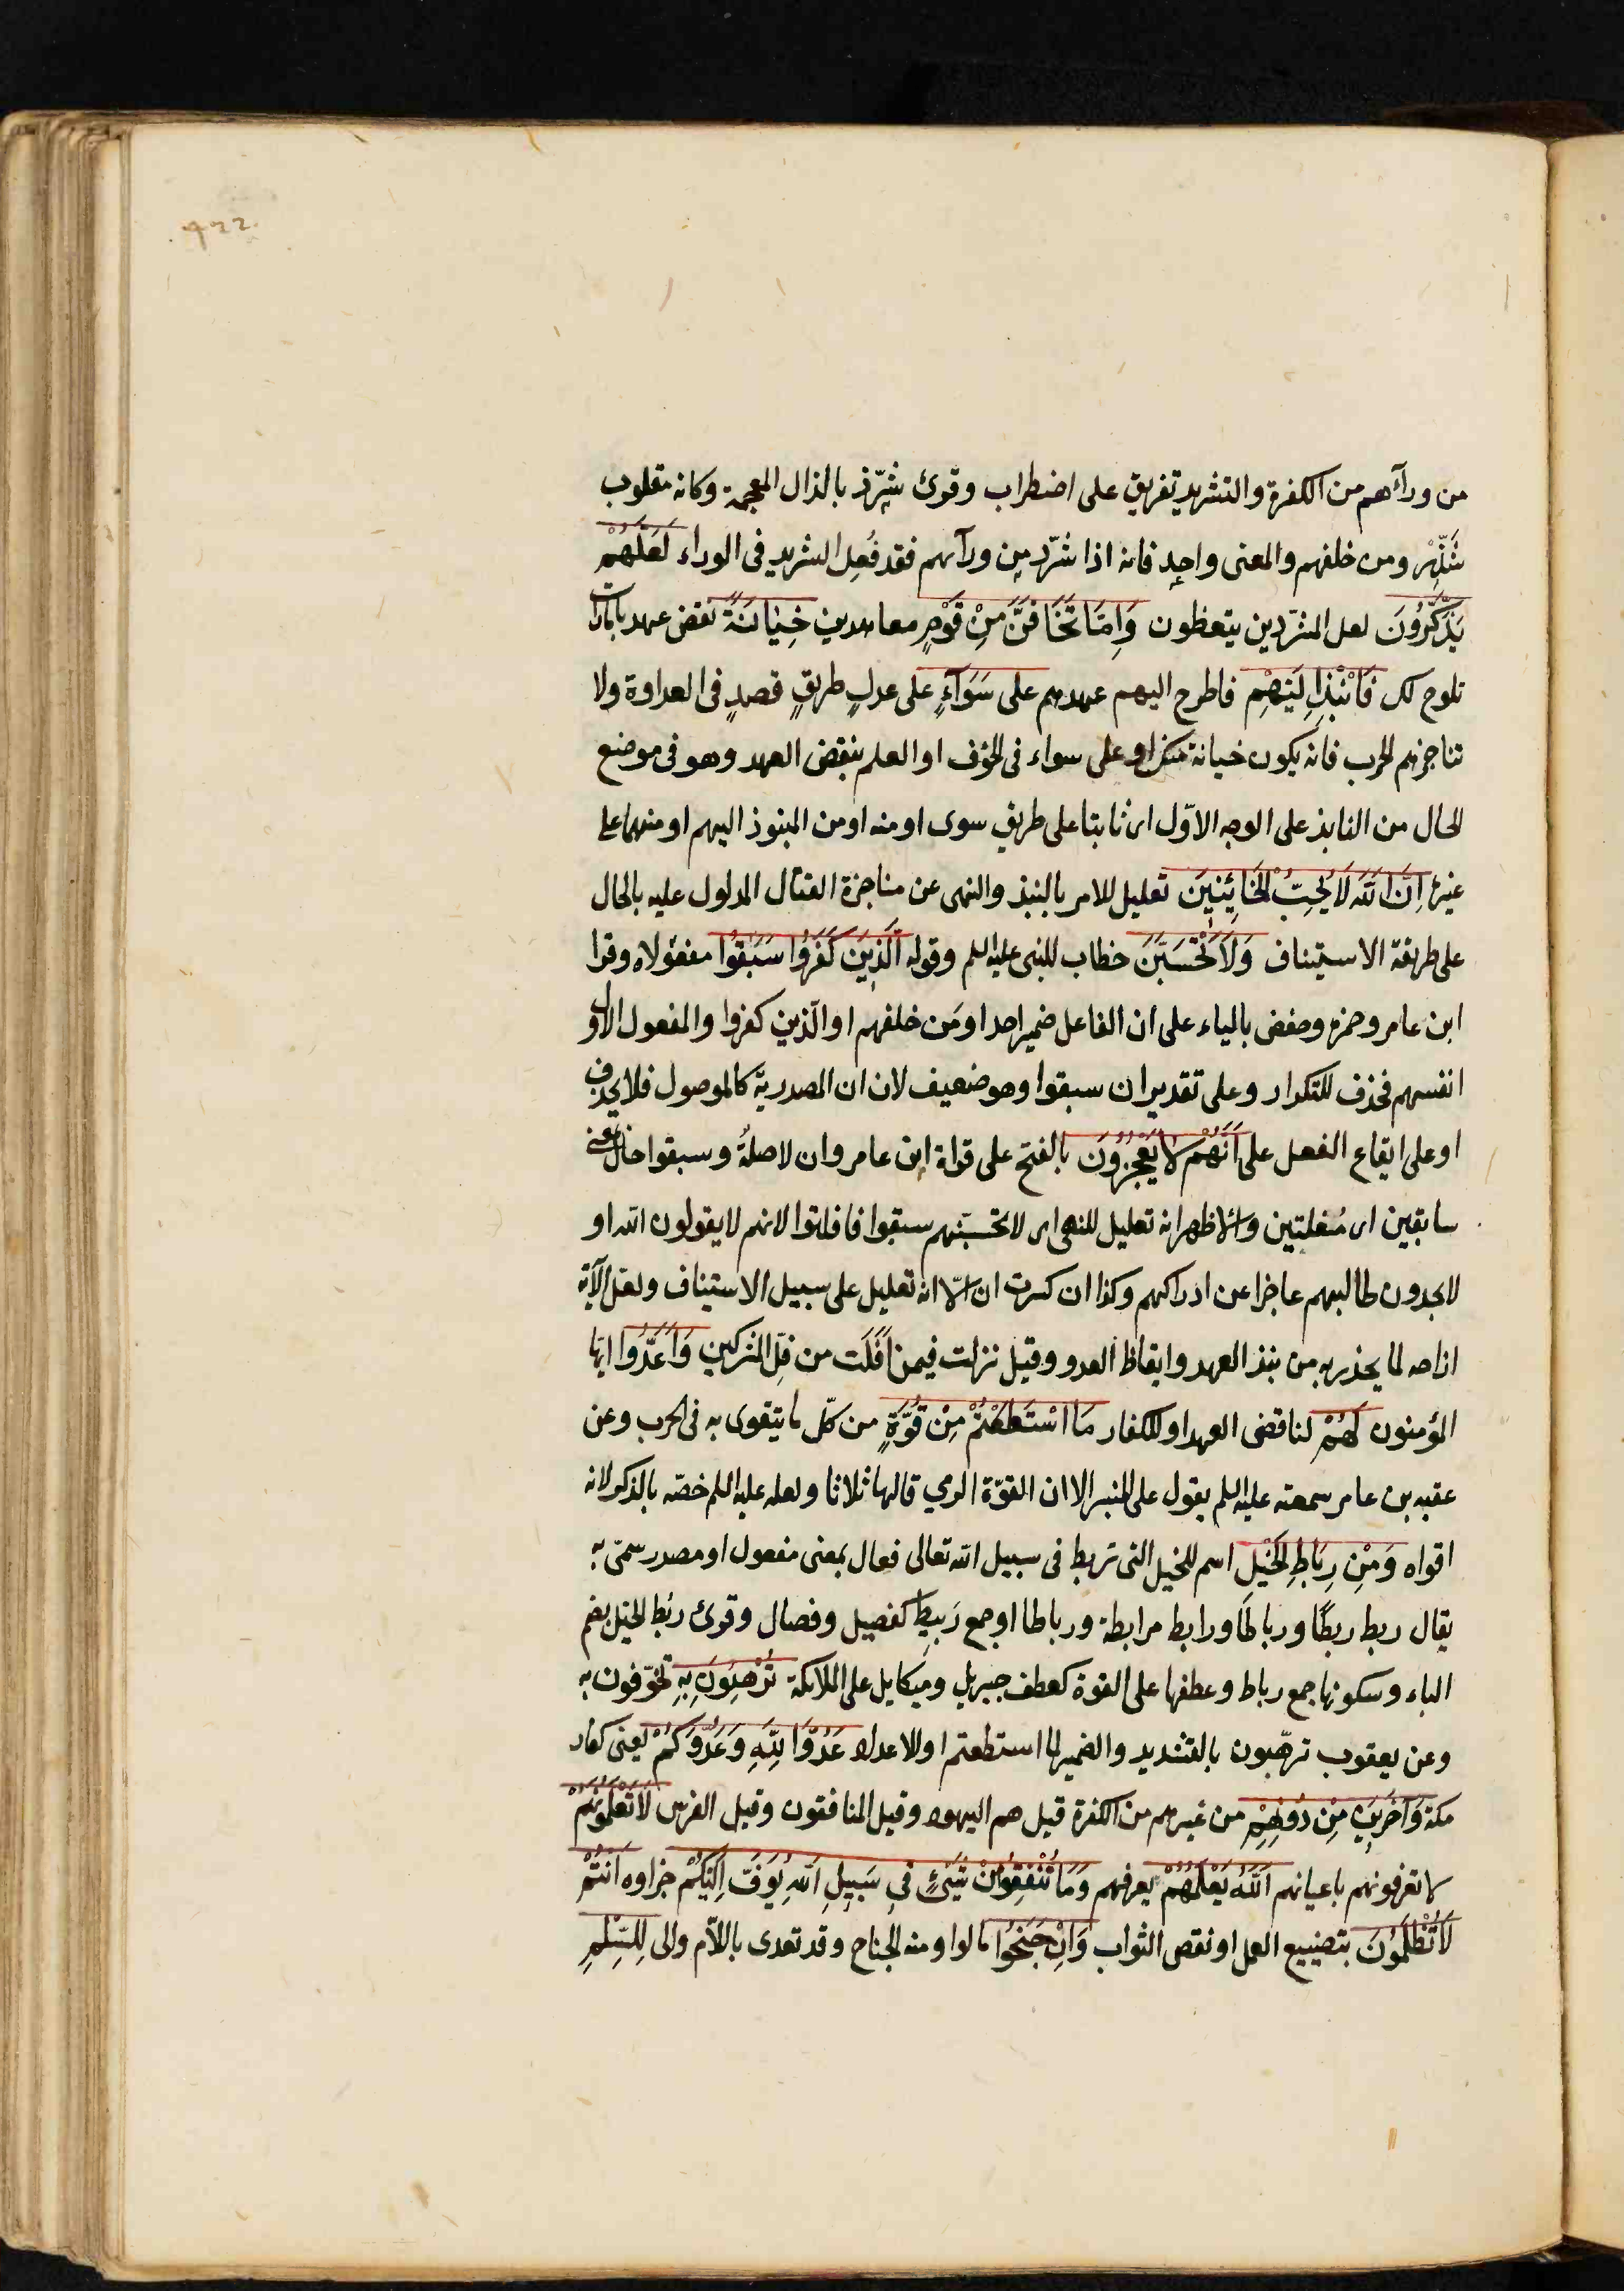 ٤٢٢
من ورآءهم من الكفرة والتشريد تفريق على اضطراب وقرئ شرّذ بالذال المعجمة وكانه مقلوب
شذّر ومن خلفهم والمعنى واحد فانه اذا شرّد من ورآءهم فقد فُعِل التشريد فى الوراء لَعَلَّهُمْ
يَذَّكَّرُونَ لعل المشرّدين يتعظون وَاِمَّا تَخَافَنَّ مِنْ قَوْمٍ معاهدين خِيَانَةً نقض عهد بامارات
تلوح لك فَانْبِذْ اِلَيْهِمْ فاطرح اليهم عهدهم على سَوَآءٍ على عدلٍ طريقٍ قصدٍ فى العداوة ولا
تناجزهم الحرب فانه يكون خيانة منك او على سواء فى الخوف او العلم بنقض العهد وهو فى موضع
الحال من النابذ على الوجه الاوّل اى ثابتا على طريق سوى او منه او من المنبوذ اليهم او منهما على
غيره اِنَّ اللّٰهَ لَا يُحِبُّ الْخَائِنِينَ تعليل للامر بالنبذ والنهى عن مناجزة القتال المدلول عليه بالحال
على طريقة الاستيناف وَلَا تَحْسَبَنَّ خطاب للنبى عليه السلم وقوله الَّذِينَ كَفَرُوا سَبَقُوا مفعولاه وقرا
ابن عامر وحمزه وحفص بالياء على ان الفاعل ضمير احد او مَن خلفهم او الّذين كفروا والمفعول الاول
انفسهم فحذف للتكرار وعلى تقدير ان سبقوا وهو ضعيف لان ان المصدريّة كالموصول فلا يحذف
او على ايقاع الفعل على اَنَّهُمْ لَا يُعْجِزُونَ بالفتح على قراة ابن عامر وان لا صلةٌ وسبقوا حال بمعنى
سابقين اى مُفلتين والاظهر انه تعليل للنهى اى لا تحسبنّهم سبقوا فافلتوا لانهم لا يفوتون الله او
لا يجدون طالبهم عاجزا عن ادراكهم وكذا ان كسرت ان الّا انه تعليل على سبيل الاستيناف ولعل الآية
ازاحة لما يحذر به من نبذ العهد وايقاظ العدو وقيل نزلت فيمن اَفْلَت من فلّ المشركين وَاَعِدُّوا ايّها
المؤمنون لَهُمْ لناقضى العهد او للكفار مَا اسْتَطَعْتُمْ مِنْ قُوَّةٍ من كلّ ما يتقوى به فى الحرب وعن
عقبه بن عامر سمعته عليه السلم يقول على المنبر الا ان القوّة الرمي قالها ثلاثا ولعله عليه السلم خصّه بالذكر لانه
اقواه وَمِنْ رِبَاطِ الْخَيْلِ اسم للخيل التى تربط فى سبيل الله تعالى فعال بمعنى مفعول او مصدر سمى به
يقال ربط ربطًا ورباطًا ورابط مرابطة ورباطا او جمع رَبيط كفصيل وفصال وقرئ ربُط الخيل بضم
الباء وسكونها جمع رباط وعطفها على القوة كعطف جبريل وميكايل على الملائكة تُرْهِبُونَ بِهِ تخوّفون به
وعن يعقوب ترهّبون بالتشديد والضمير لما استطعتم او للاعداد عَدُوَّ اللّٰهِ وَعَدُوَّكُمْ يعنى كفار
مكة وَآخَرِينَ مِنْ دُونِهِمْ من غيرهم من الكفرة قيل هم اليهود وقيل المنافقون وقيل الفرس لَا تَعْلَمُونَهُمْ
لا تعرفونهم باعيانهم اَللّٰهُ يَعْلَمُهُمْ يعرفهم وَمَا تُنْفِقُوا مِنْ شَيْئٍ فِى سَبِيلِ اللّٰهِ يُوَفَّ اِلَيْكُمْ جزاوه اَنْتُمْ
لَا تُظْلَمُونَ بتضييع العمل او نقص الثواب وَاِنْ جَنَحُوا مالوا ومنه الجناح وقد تعدى باللاّم والى لِلسِّلْمِ